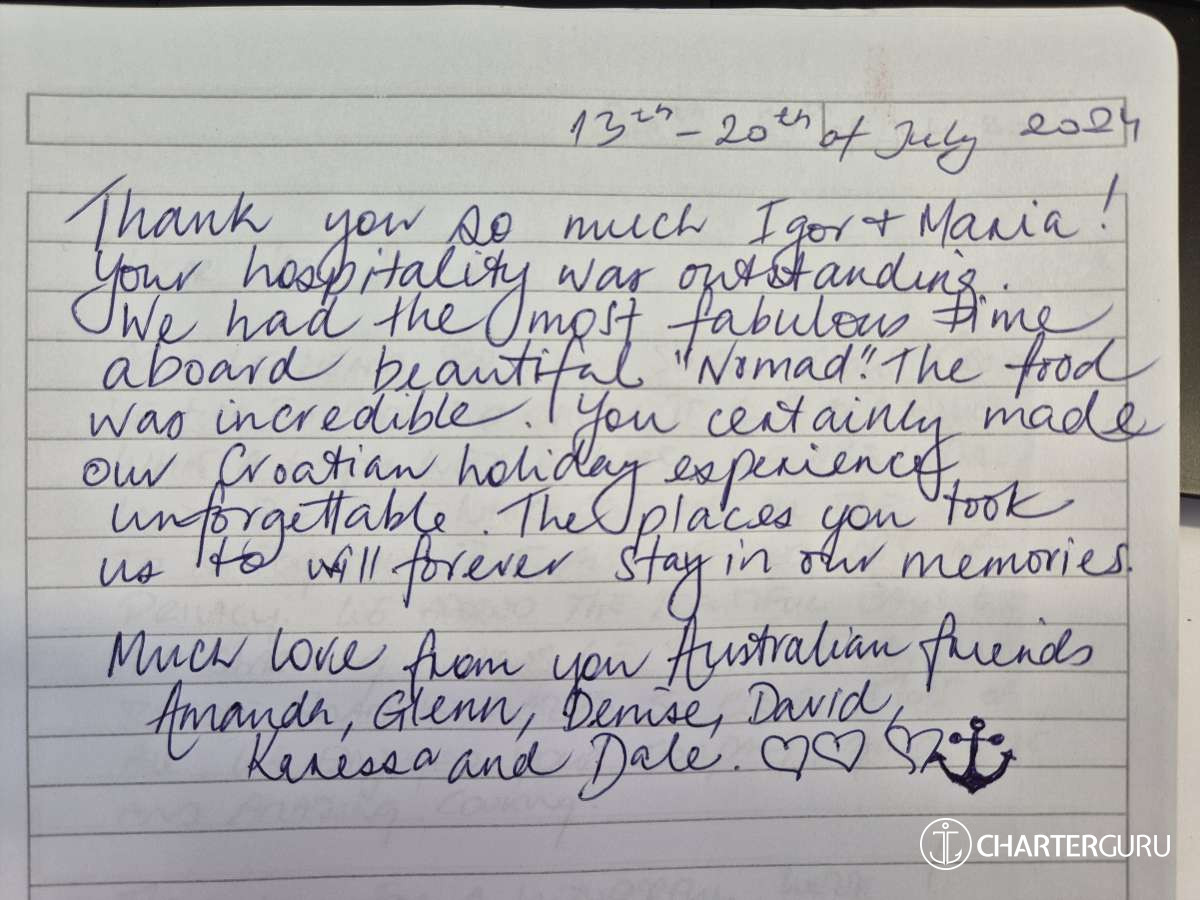 13th - 20th of July 2024
Thank you so much Igor + Maria!
Your hospitality was outstanding.
We had the most fabulous time
aboard beautiful "Nomad". The food
was incredible. You certainly made
our Croatian holiday experience
unforgettable. The places you took
us to will forever stay in our memories.
Much love from you Australian friends
Amanda, Glenn, Denise, David,
Karessa and Dale.
CHARTERGURU